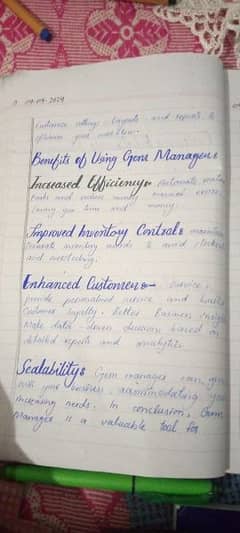 09-09-2024
Customize settings, layouts and reports to
optimize your workflow.
Benefits of Using Gone Manager:
Increased Efficiency:- Automate
tasks and reduce manual errors,
saving you time and money.
Improved Inventory Control:
accurate inventory needs to avoid
and overstocking.
Enhanced Customer:- Service,
provide personalized service and build
Customer loyalty. Better Business
Make data-driven decision based on
detailed reports and analytics.
Scalability: Gem manager can grow
with your business, accommodating your
increasing needs. In conclusion,
Manager is a valuable tool for